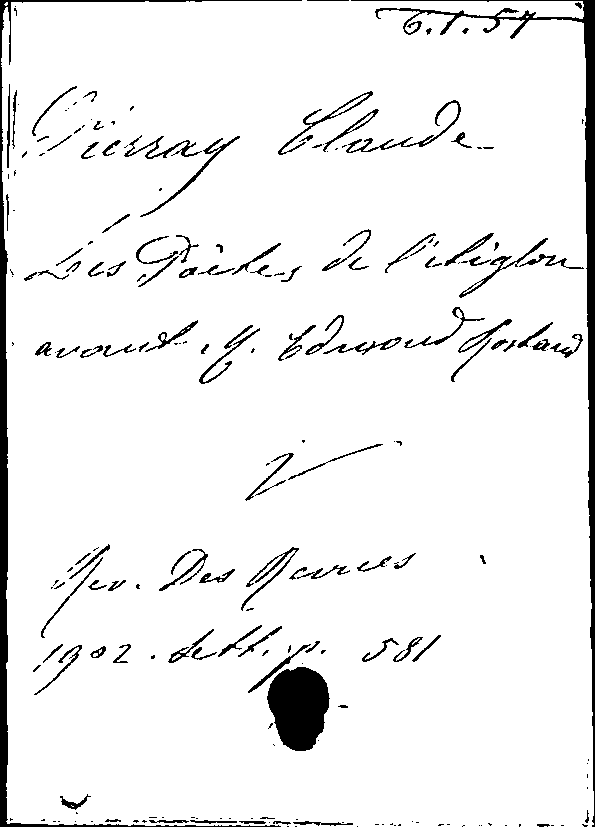 6.1.57
Pierray Claude
Les Poètes de l'Aiglon
avant M. Edmond Rostand
V
Rev. Des Revues
1902. Sett. p. 581